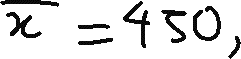 x̄ = 450,